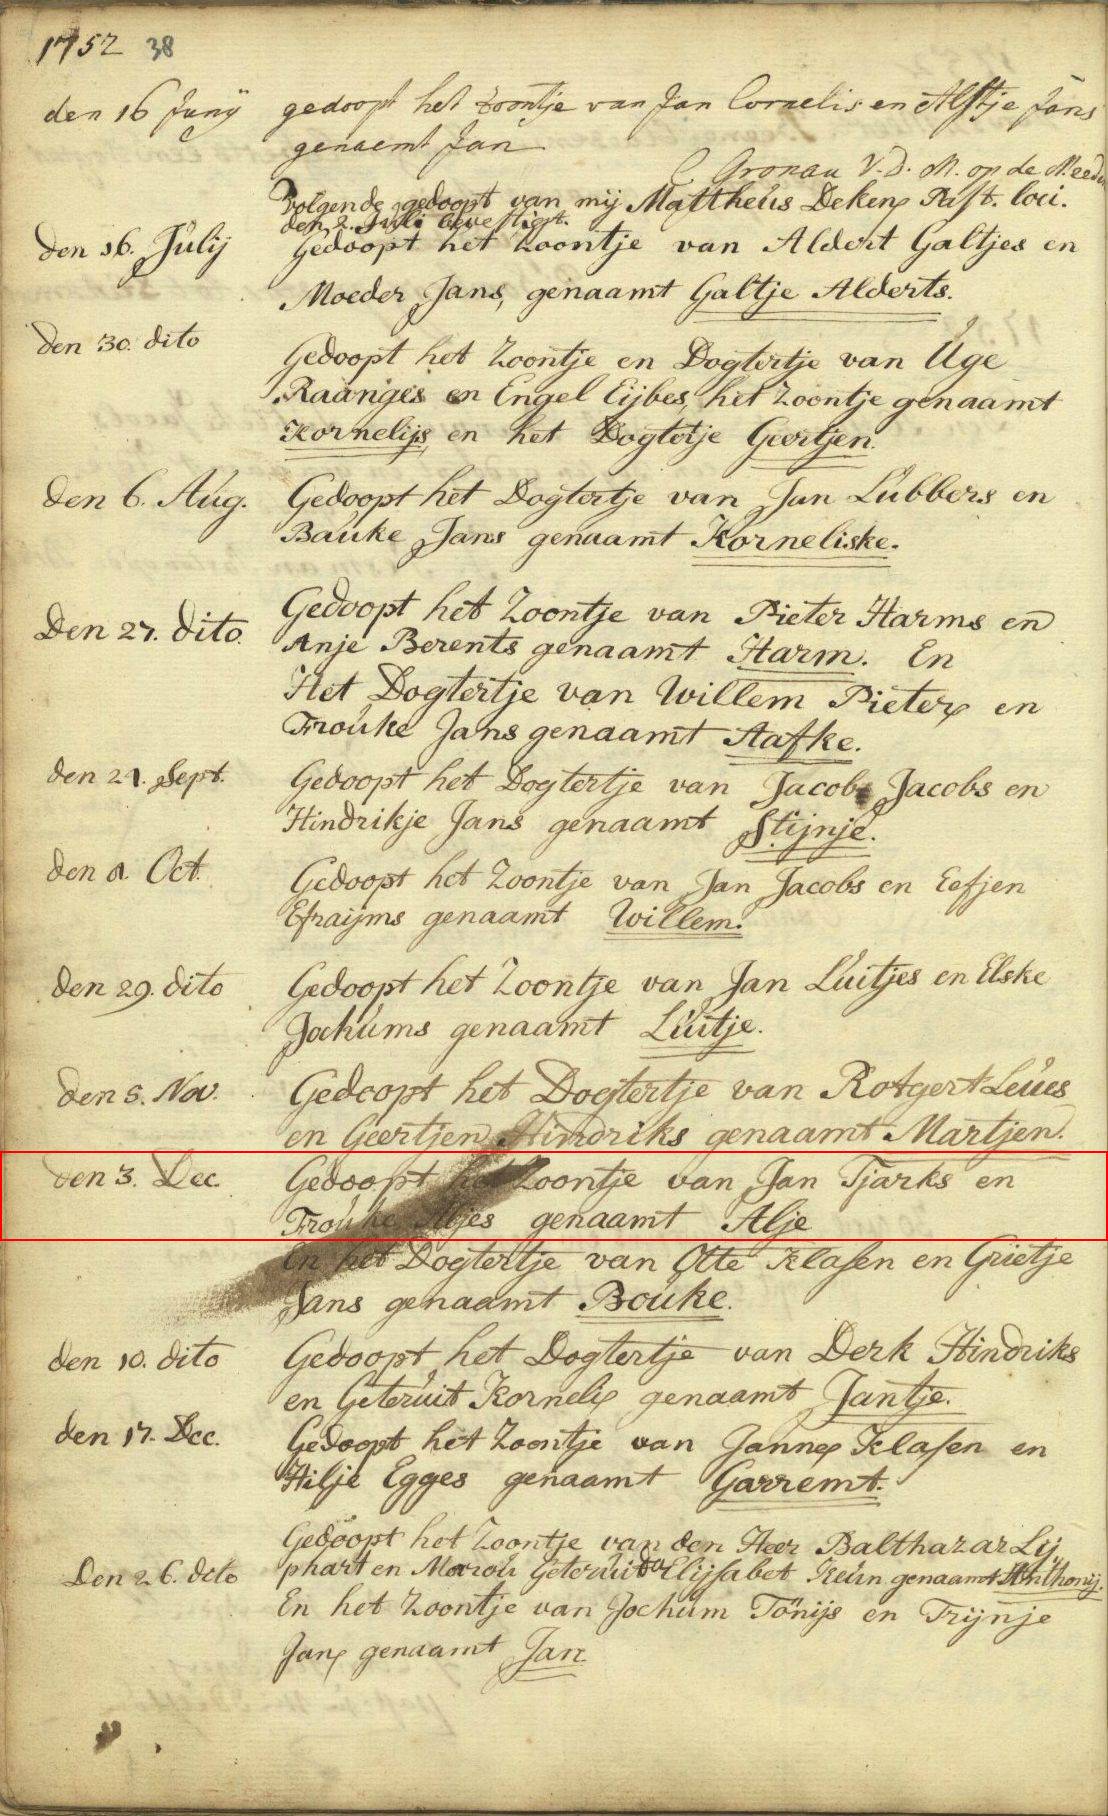 1752 38
den 16 Junÿ gedoopt het zoontje van Jan Cornelis en Alstje Jans
genaemt Jan
C. Gronau V. D. M. op de Meeden
Volgende gedoopt van mij Mattheus Dekens Past. loci.
den 2. Juli bevestigt.
den 16. Julij Gedoopt het Zoontje van Aldert Galtjes en
Moeder Jans, genaamt Galtje Alderts.
den 30. dito
Gedoopt het Zoontje en Dogtertje van Uge
Raanges en Engel Eijbes, het Zoontje genaamt
Kornelijs, en het Dogtetje Geertjen.
den 6. Aug. Gedoopt het Dogtertje van Jan Lubbers en
Bauke Jans genaamt Korneliske.
Den 27. dito Gedoopt het Zoontje van Pieter Harms en
Anje Berents genaamt Harm. En
Het Dogtertje van Willem Pieters en
Frouke Jans genaamt Aafke.
den 21. Sept. Gedoopt het Dogtertje van Jacob Jacobs en
Hindrikje Jans genaamt Stijnje.
den Oct. Gedoopt het Zoontje van Jan Jacobs en Eefjen
Efraijms genaamt Willem.
den 29. dito Gedoopt het Zoontje van Jan Luitjes en Elske
Jochums genaamt Luitje.
den 5. Nov. Gedoopt het Dogtertje van Rotgert Leues
en Geertjen Hindriks genaamt Martjen.
den 3. Dec. Gedoopt het Zoontje van Jan Tjarks en
Frouke Aljes genaamt Alje
En het Dogtertje van Otte Klasen en Grietje
Jans genaamt Bouke.
den 10. dito Gedoopt het Dogtertje van Derk Hindriks
en Geteruit Kornelis genaamt Jantje.
den 17. Dec. Gedoopt het Zoontje van Jannes Klasen en
Hilje Egges genaamt Garremt.
Gedoopt het Zoontje van den Heer Balthazar Lij
Den 26. dito phart en Geteruida Elijsabet Keun genaamt Anthonij.
En het Zoontje van Jochum Tönijs en Trijnje
Jans genaamt Jan